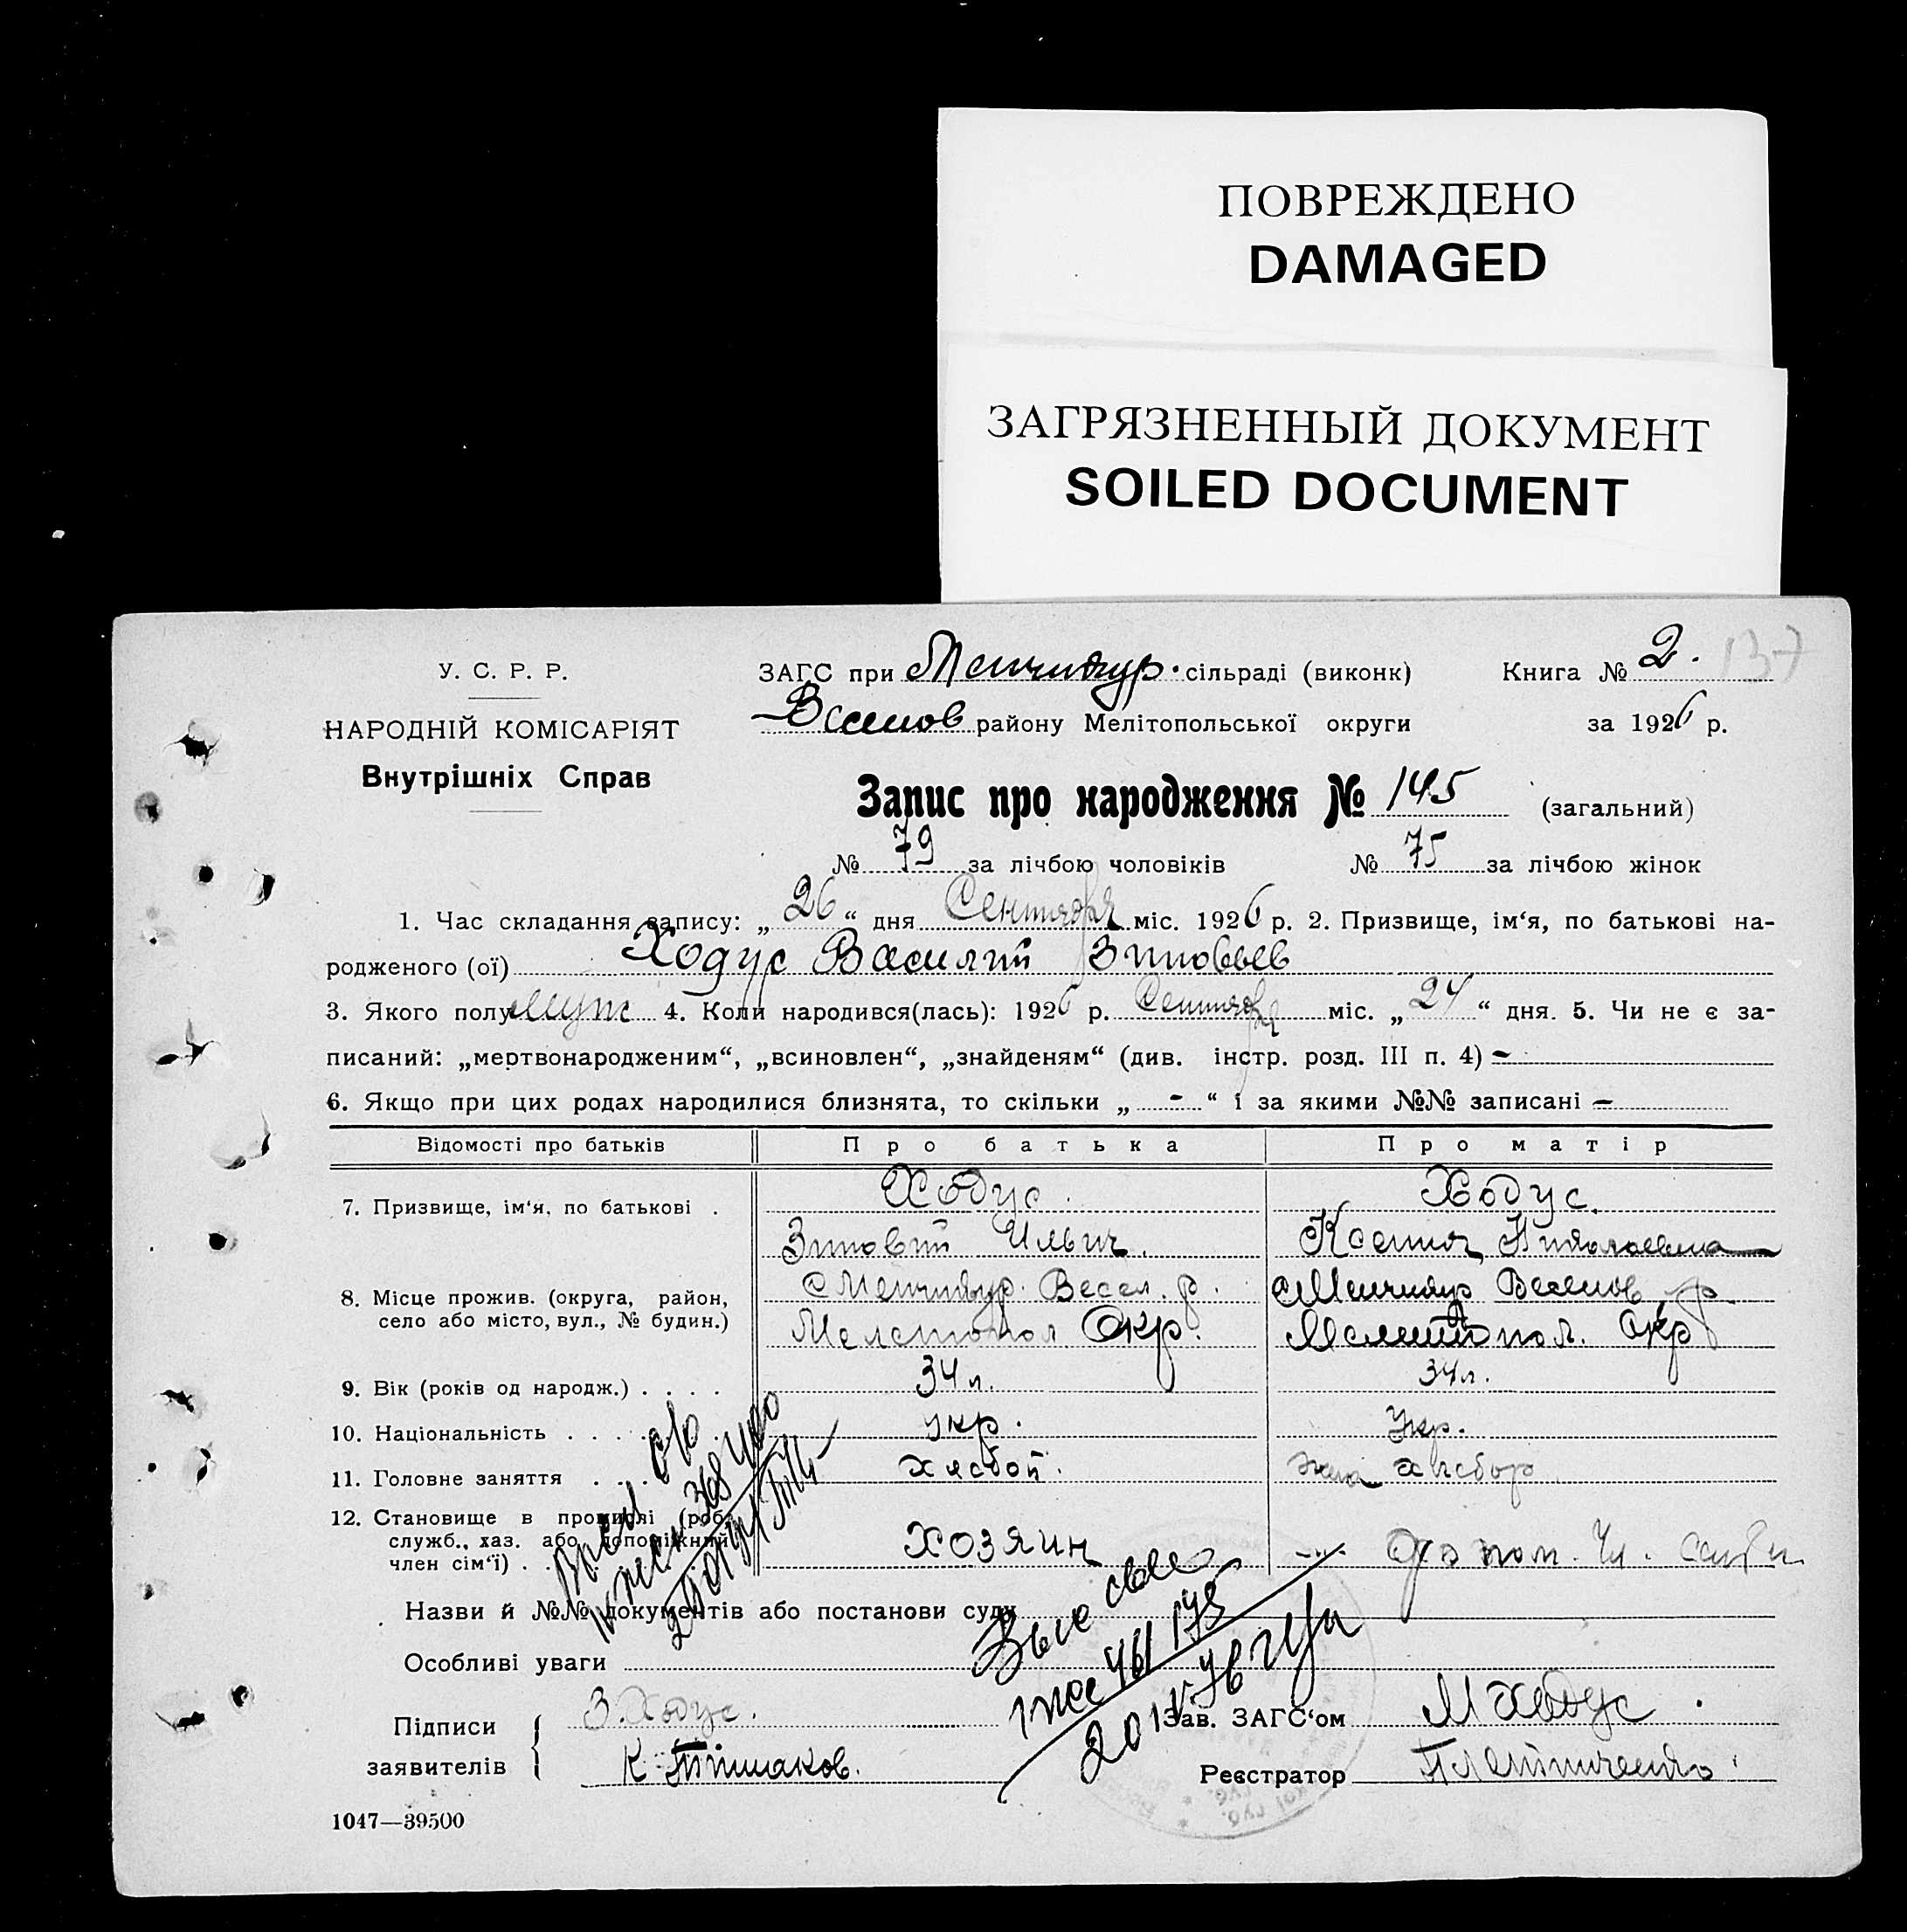 ПОВРЕЖДЕНО
DAMAGED
ЗАГРЯЗНЕННЫЙ ДОКУМЕНТ
SOILED DOCUMENT
У. С. Р. Р.
НАРОДНІЙ КОМІСАРІЯТ
Внутрішніх Справ
ЗАГС при Менчикур. сільраді (виконк)
Веселов району Мелітопольської округи
Книга № 2. 137
за 1926 р.
Запис про народження № 145 (загальний)
№ 79 за лічбою чоловіків № 75 за лічбою жінок
1. Час складання запису: „ 26 “ дня Сентября міс. 1926 р. 2. Призвище, ім‘я, по батькові на-
родженого (ої) Ходус Василий Зиновьев
3. Якого полу муж 4. Коли народився(лась): 1926 р. Сентября міс. „ 24 “ дня. 5. Чи не є за-
писаний: „мертвонародженим“, „всиновлен“, „знайденям“ (див. інстр. розд. III п. 4) –
6. Якщо при цих родах народилися близнята, то скільки „ - “ і за якими №№ записані –
Відомості про батьків Про батька Про матір
7. Призвище, ім‘я, по батькові . Ходус. Ходус.
Зиновий Ильич. Ксения Николаевна
8. Місце прожив. (округа, район, с Менчикур. Весел. р. с Менчикур Веселов р.
село або місто, вул., № будин.) Мелитопол. Окр. Мелитопол. Окр
9. Вік (років од народж.) . . . . 34 л. 34 л.
10. Національність . . . . укр. Укр.
11. Головне заняття . . . хлебоп. жена хлебор
12. Становище в промислі (роб.
служб., хаз. або допоміжний
член сім‘ї) . . хозяин допом. чл. семьи
Назви й №№ документів або постанови суду
Особливі уваги
Підписи
заявителів
З. Ходус.
К.
Зав. ЗАГС‘ом М Ходус.
Реєстратор
1047—39500